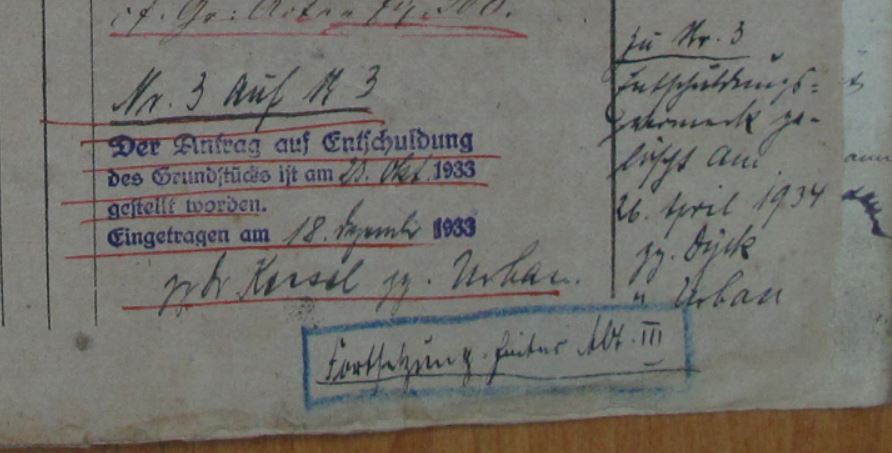 cf. Gr: Akten
Nr. 3 auf
Der Antrag auf Entschuldung
des Grundstücks ist am 23. Okt. 1933
gestellt worden.
Eingetragen am 18. Dezember 1933
gz. Dr. Kessel gz. Urban.
Fortsetzung hinter Abt. III
zu Nr. 3
Entschuldungs-
vermerk ge-
löscht am
26. April 1934
gz. Dyck
" Urban